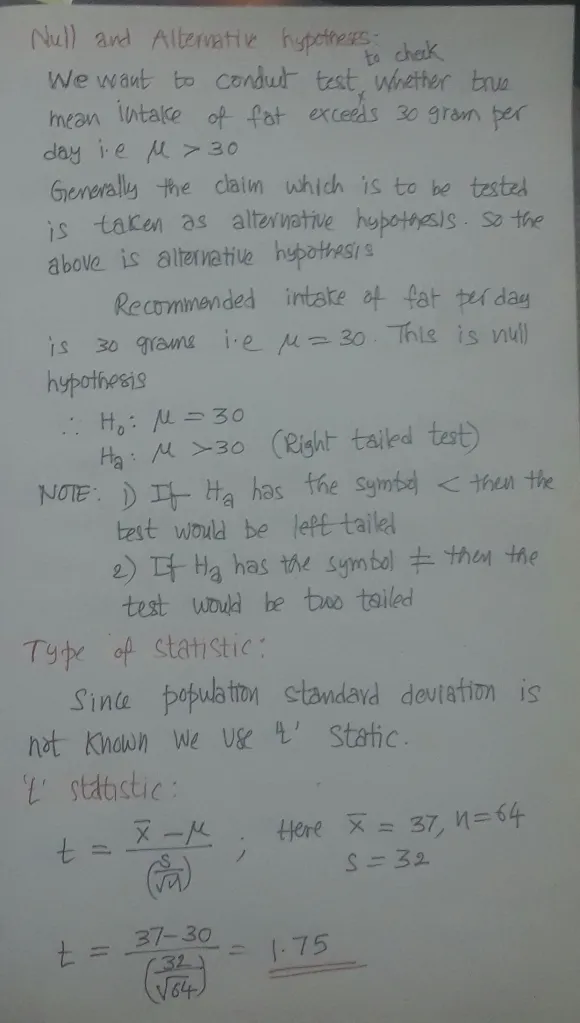 Null and Alternative hypothesis:-
to check
We want to conduct test, whether true
mean intake of fat exceeds 30 gram per
day i.e μ > 30
Generally the claim which is to be tested
is taken as alternative hypothesis. So the
above is alternative hypothesis
Recommended intake of fat per day
is 30 grams i.e μ = 30. This is null
hypothesis
∴ H₀: μ = 30
Hₐ: μ > 30 (Right tailed test)
NOTE: 1) If Hₐ has the symbol < then the
test would be left tailed
2) If Hₐ has the symbol ≠ then the
test would be two tailed
Type of statistic:
Since population standard deviation is
not known we use 't' static.
't' statistic:
t = (x̄ - μ) / (s/√n) ; Here x̄ = 37, n=64
s = 32
t = (37-30) / (32/√64) = 1.75